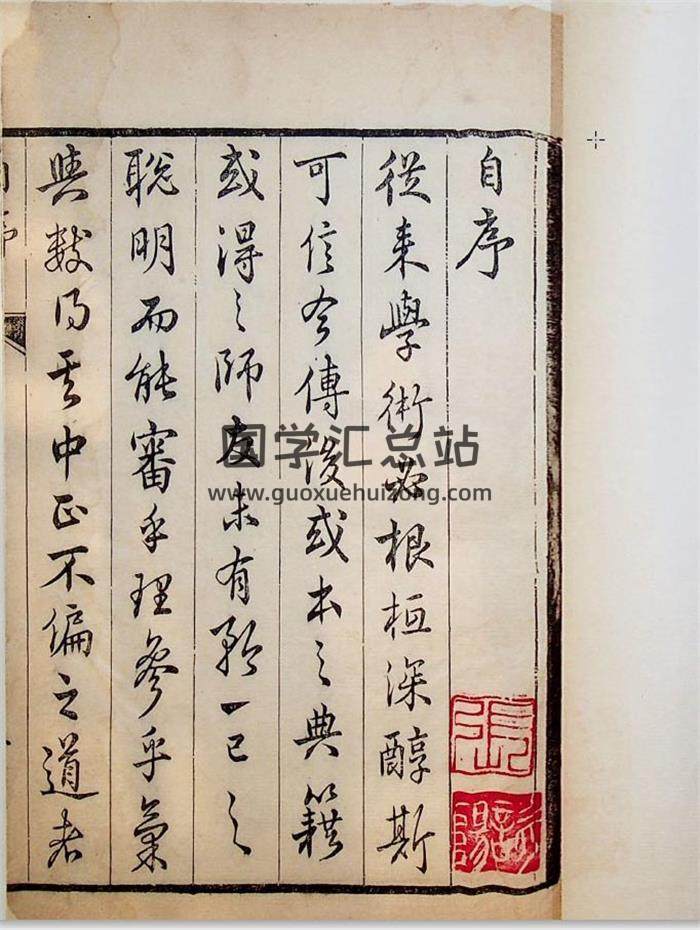 自序
從来學術必根柢深醇斯
可信今傳後或本之典籍
或得之師友未有矜一己之
聰明而能審乎理參乎氣
與數得其中正不偏之道者
自序
国学汇总站
www.guoxuehuizong.com